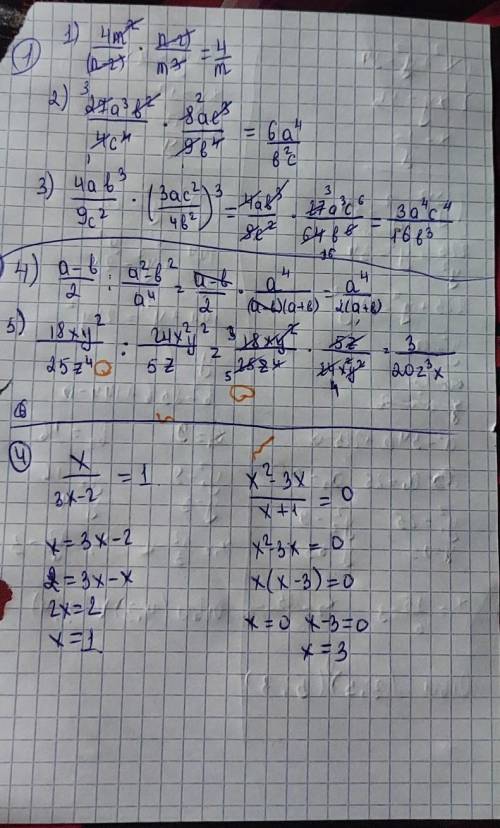 1
1) 4m²/(n-2) · (n-2)/m³ = 4/m
2) ³27a³b²/4c⁴ · 8²ac³/9b⁴ = 6a⁴/b²c
3) 4ab³/9c² · (3ac²/4b²)³ = 4ab³/9c² · ³27a³c⁶/64b⁶ 16 = 3a⁴c⁴/16b³
4) a-b/2 : a²-b²/a⁴ = a-b/2 · a⁴/(a-b)(a+b) = a⁴/2(a+b)
5) 18xy²/25z⁴ : 24x²y²/5z = ³18xy²/5 25z⁴ · 5z/24x²y² 4 = 3/20z³x
4
x/3x-2 = 1
x=3x-2
2=3x-x
2x=2
x=1
x²-3x/x+1 = 0
x²-3x=0
x(x-3)=0
x=0 x-3=0
x=3